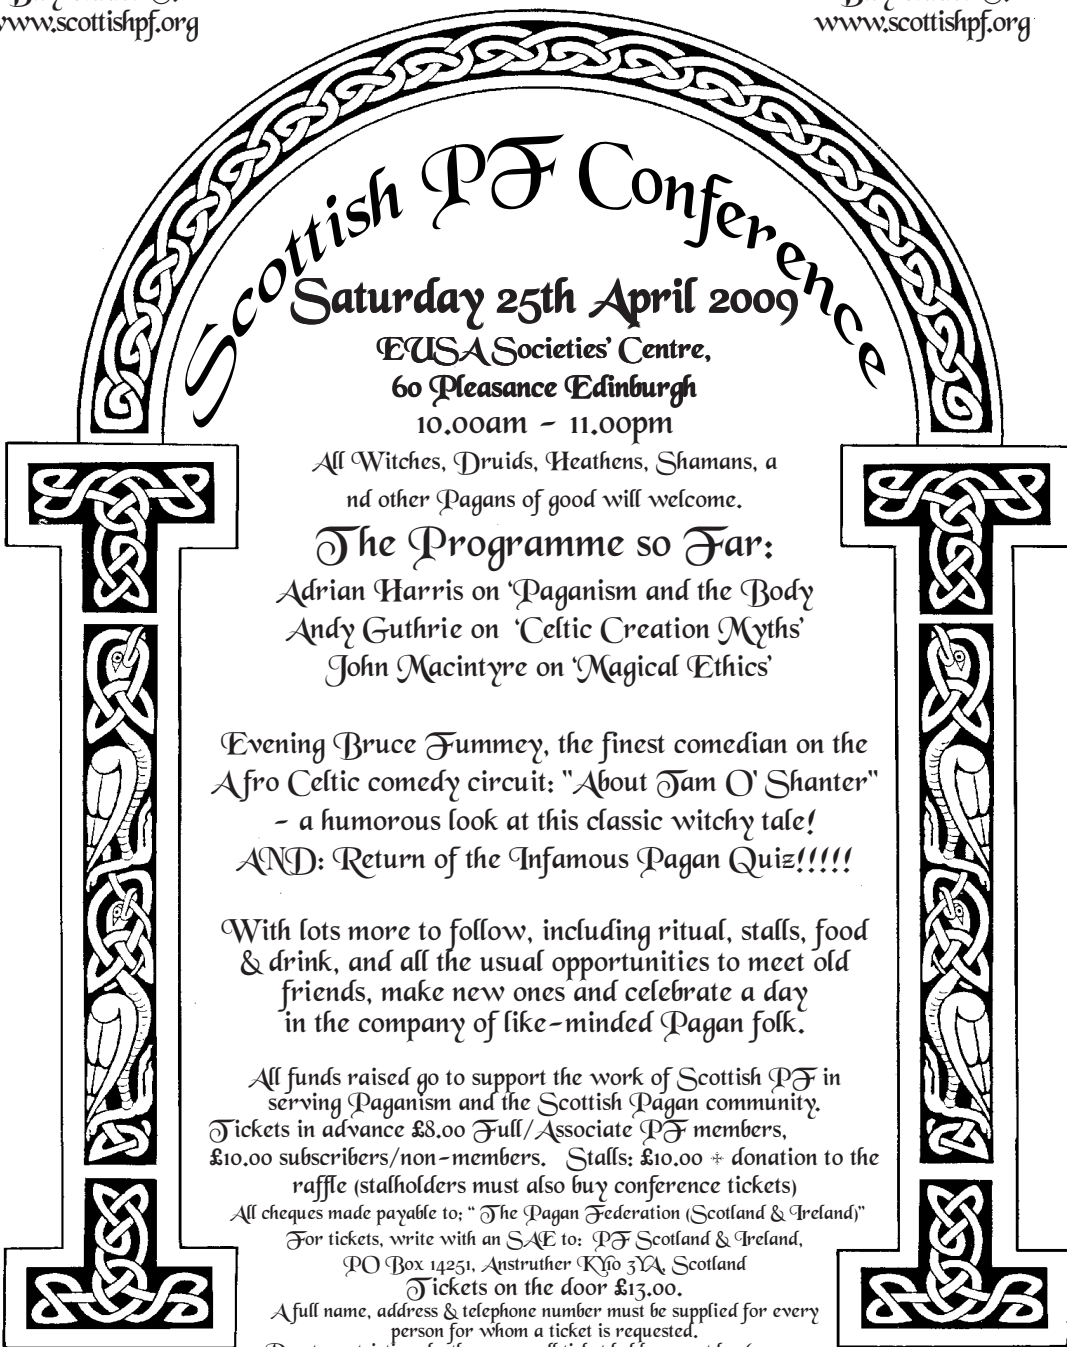 www.scottishpf.org
www.scottishpf.org
Scottish PF Conference
Saturday 25th April 2009
EUSA Societies' Centre,
60 Pleasance Edinburgh
10.00am - 11.00pm
All Witches, Druids, Heathens, Shamans, a
nd other Pagans of good will welcome.
The Programme so Far:
Adrian Harris on 'Paganism and the Body
Andy Guthrie on 'Celtic Creation Myths'
John Macintyre on 'Magical Ethics'
Evening Bruce Fummey, the finest comedian on the
Afro Celtic comedy circuit: "About Tam O' Shanter"
- a humorous look at this classic witchy tale!
AND: Return of the Infamous Pagan Quiz!!!!!
With lots more to follow, including ritual, stalls, food
& drink, and all the usual opportunities to meet old
friends, make new ones and celebrate a day
in the company of like-minded Pagan folk.
All funds raised go to support the work of Scottish PF in
serving Paganism and the Scottish Pagan community.
Tickets in advance £8.00 Full/Associate PF members,
£10.00 subscribers/non-members. Stalls: £10.00 + donation to the
raffle (stalholders must also buy conference tickets)
All cheques made payable to; " The Pagan Federation (Scotland & Ireland)"
For tickets, write with an SAE to: PF Scotland & Ireland,
PO Box 14251, Anstruther KY10 3YA, Scotland
Tickets on the door £13.00.
A full name, address & telephone number must be supplied for every
person for whom a ticket is requested.